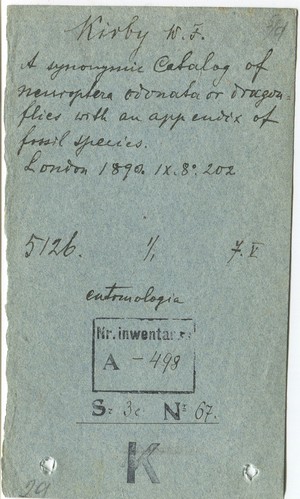 Kirby W. F.
A synonymic Catalog of
neuroptera odonata or dragon=
flies with an appendix of
fossil species.
London 1890. IX. 8º. 202
5126. 1/1 7. V
entomologia
Nr. inwentarz.
A - 498
S: 3c Nº 67.
K
29